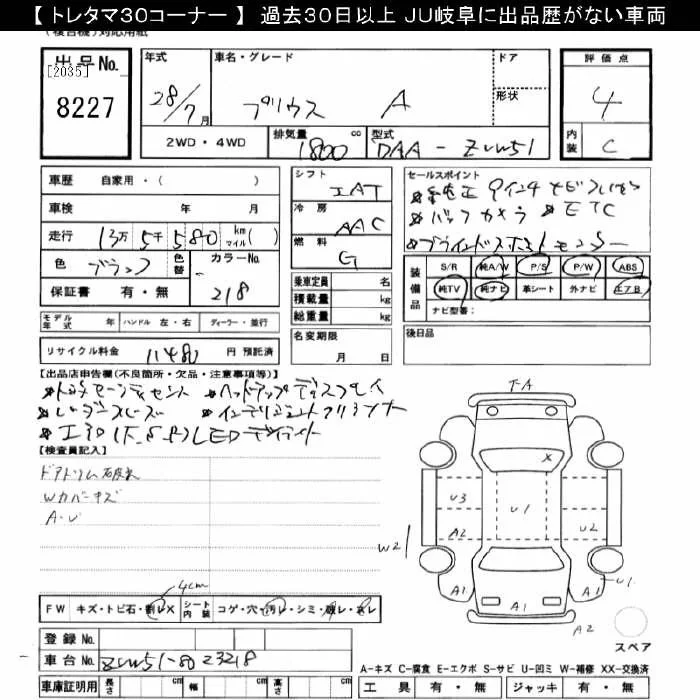 【 トレタマ30コーナー 】 過去30日以上 JU岐阜に出品歴がない車両
出品No.
[2035]
8227
年式
28/7月
車名・グレード
プリウス A
ドア
形状
評価点
4
内装
C
2WD・4WD
排気量 1800 cc
型式 DAA-ZVW51
車歴 自家用・( )
車検 年 月
走行 13万5千580 km マイル( )
色 ブラック
色替
カラーNo. 218
保証書 有・無
シフト IAT
冷房 AAC
燃料 G
乗車定員 名
積載量 kg
総重量 kg
セールスポイント
★純正9インチナビフルセグ
★バックカメラ ★ETC
★ブラインドスポットモニター
装備品
S/R 純A/W P/S P/W ABS
純TV 純ナビ 革シート 外ナビ エアB
ナビ型番:
モデル年式 年 ハンドル 左・右 ディーラー・並行
名変期限
月 日
後日品
リサイクル料金 11480 円 預託済
【出品店申告欄(不良箇所・欠品・注意事項等)】
★トヨタセーフティセンス ★ヘッドアップディスプレイ
★レーダークルーズ ★インテリジェントクリアランス
LEDデイライト
【検査員記入】
ドアトリム破損
Wカバーキズ
A・U
4cm
FW キズ・トビ石・割レX シート内装 コゲ・穴・汚レ・シミ・破レ・スレ
登録No.
車台No. ZVW51-8023218
車庫証明用 長さ cm 幅 cm 高さ cm
FA
X
U3
U1
A2
U2
W2
A1
A1
A1
U1
A2
スペア
A-キズ C-腐食 E-エクボ S-サビ U-凹ミ W-補修 XX-交換済
工具 有・無 ジャッキ 有・無